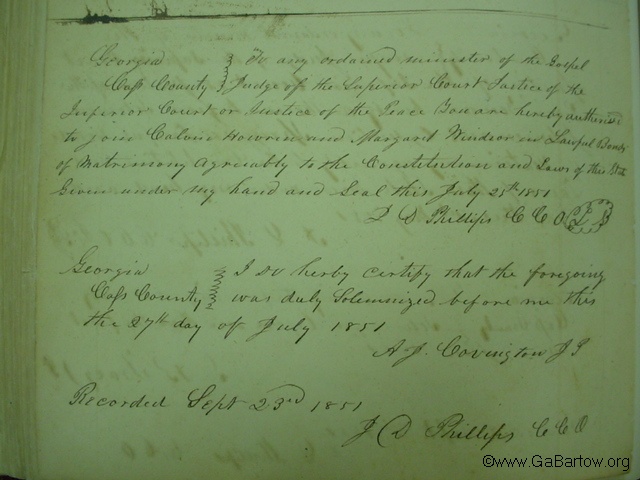 Georgia } To any ordained minister of the Gospel
Cass County } Judge of the Superior Court Justice of the
Inferior Court or Justice of the Peace You are hereby authorised
to join Calvin and Margaret Windsor in Lawful Bonds
of Matrimony Agreeably to the Constitution and Laws of this State
Given under my hand and Seal this July 25th 1851
J D Phillips C C O L S
Georgia } I do herby certify that the foregoing
Cass County } was duly Solemnized before me this
the 27th day of July 1851
A. J. Covington J P
Recorded Sept 23rd 1851
J D Phillips C C O
©www.GaBartow.org